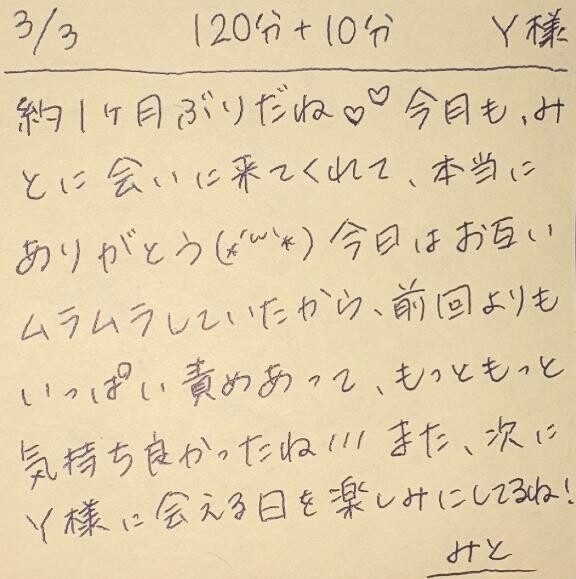 3/3 120分+10分 Y様
約1ヶ月ぶりだね♡♡ 今日も、み
とに会いに来てくれて、本当に
ありがとう(*´ω`*)今日はお互い
ムラムラしていたから、前回よりも
いっぱい責めあって、もっともっと
気持ち良かったね!!! また、次に
Y様に会える日を楽しみにしてるね!
みと